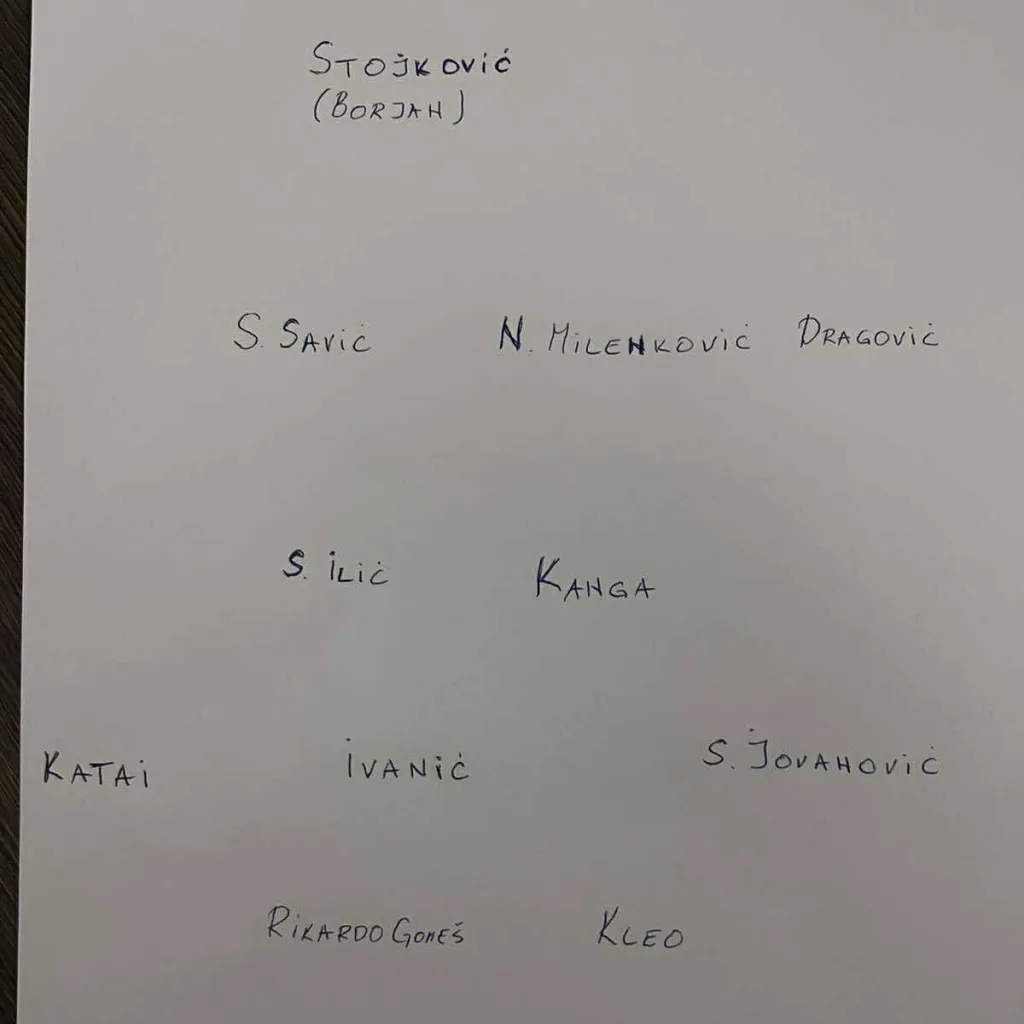 Stojković
(Borjan)
S. Savić N. Milenković Dragović
S. Ilić Kanga
Katai Ivanić S. Jovanović
Rikardo Gomeš Kleo